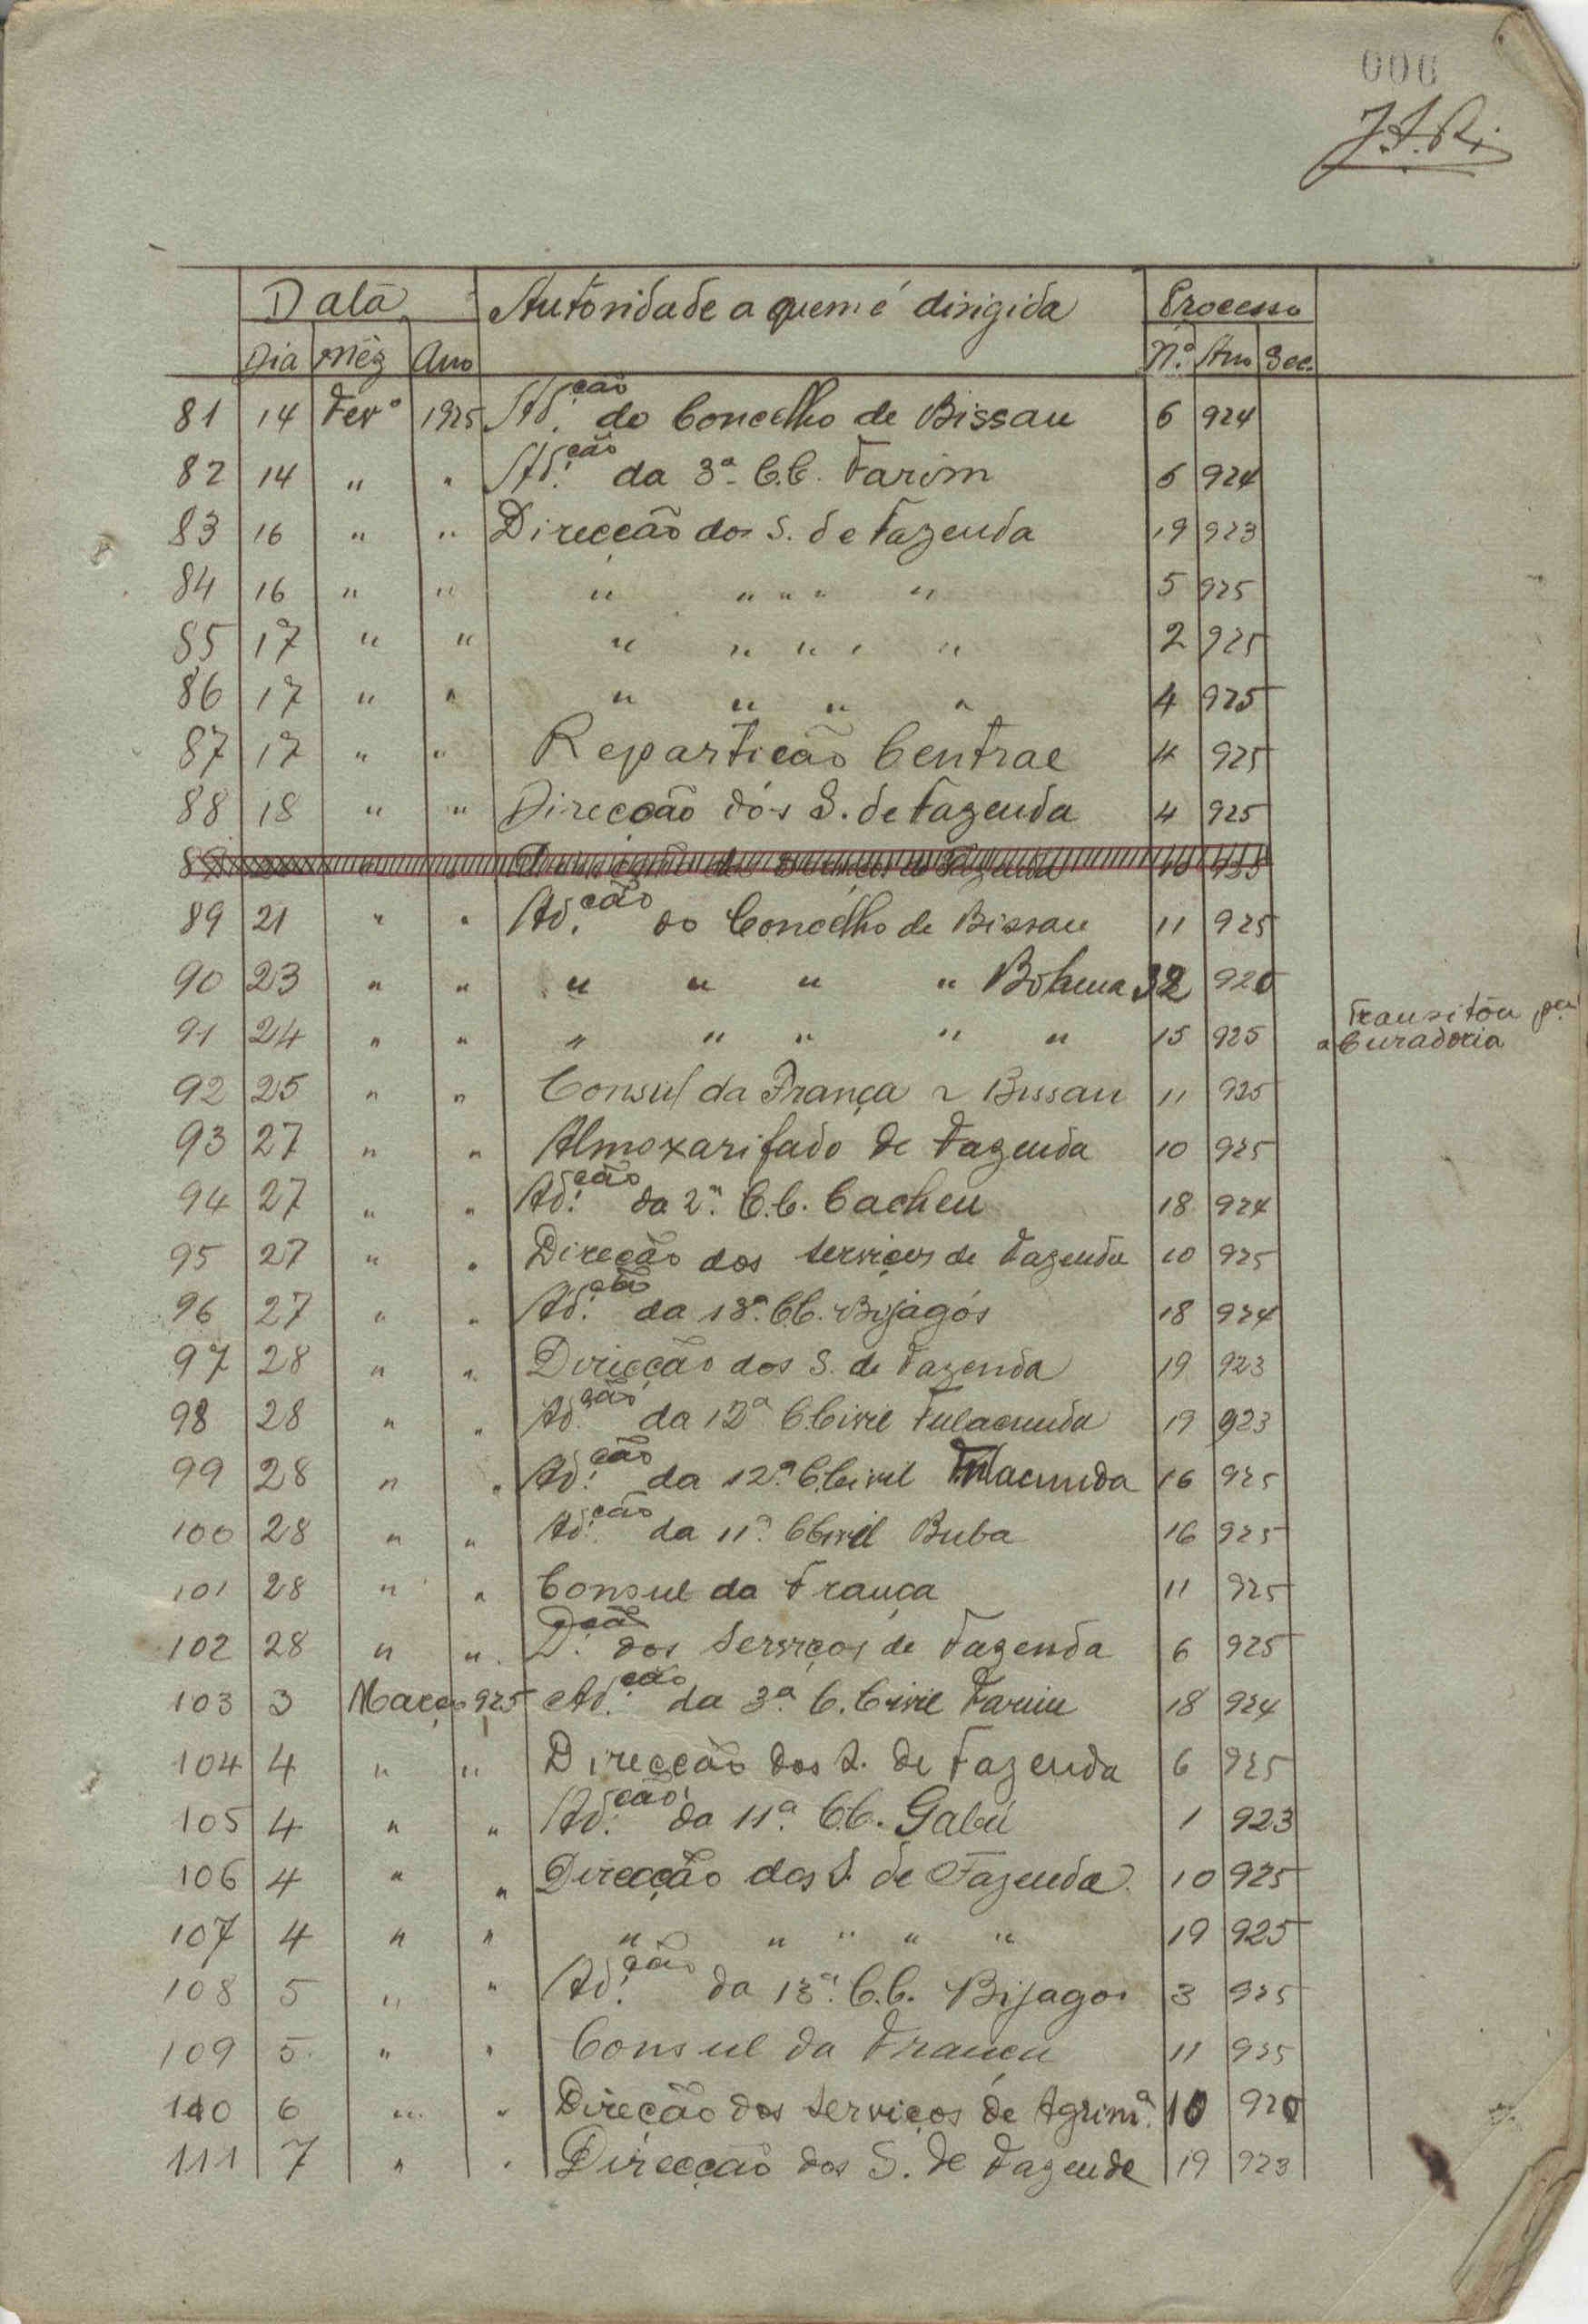 006
J.A.Ri
Data Autoridade a quem é dirigida Processo
Dia Mêz Ano N.º Ano Sec.
81 14 Fevº 1925 Ad.ção do Concelho de Bissau 6 924
82 14 " " Ad.ção da 3ª C.C. Farim 6 924
83 16 " " Direcção dos S. de Fazenda 19 923
84 16 " " " " " " " 5 925
85 17 " " " " " " " 2 925
86 17 " " " " " " 4 925
87 17 " " Repartição Central 4 925
88 18 " " Direcção dos S. de Fazenda 4 925
89 21 " " Ad.ção do Concelho de Bissau 11 925
90 23 " " " " " " Bolama 32 920
91 24 " " " " " " " 15 925 Transitou pª
a Curadoria
92 25 " " Consul da França - Bissau 11 925
93 27 " " Almoxarifado de Fazenda 10 925
94 27 " " Ad.ção da 2ª C.C. Cacheu 18 924
95 27 " " Direcção dos Serviços de Fazenda 10 925
96 27 " " Ad.ção da 13ª C.C. Bijagós 18 924
97 28 " " Direcção dos S. de Fazenda 19 923
98 28 " " Ad.ção da 12ª C.Civil Fulacunda 19 923
99 28 " " Ad.ção da 12ª C.Civil Fulacunda 16 925
100 28 " " Ad.ção da 11ª C.Civil Buba 16 925
101 28 " " Consul da França 11 925
102 28 " " D.ção dos Serviços de Fazenda 6 925
103 3 Março 925 Ad.ção da 3ª C.Civil Farim 18 924
104 4 " " Direcção dos S. de Fazenda 6 925
105 4 " " Ad.ção da 11ª C.C. Gabú 1 923
106 4 " " Direcção dos S. de Fazenda 10 925
107 4 " " " " " " " 19 925
108 5 " " Ad.ção da 13ª C.C. Bijagos 3 925
109 5 " " Consul da França 11 925
110 6 " " Direção dos Serviços de Agrimª 10 920
111 7 " " Direcção dos S. de Fazenda 19 923